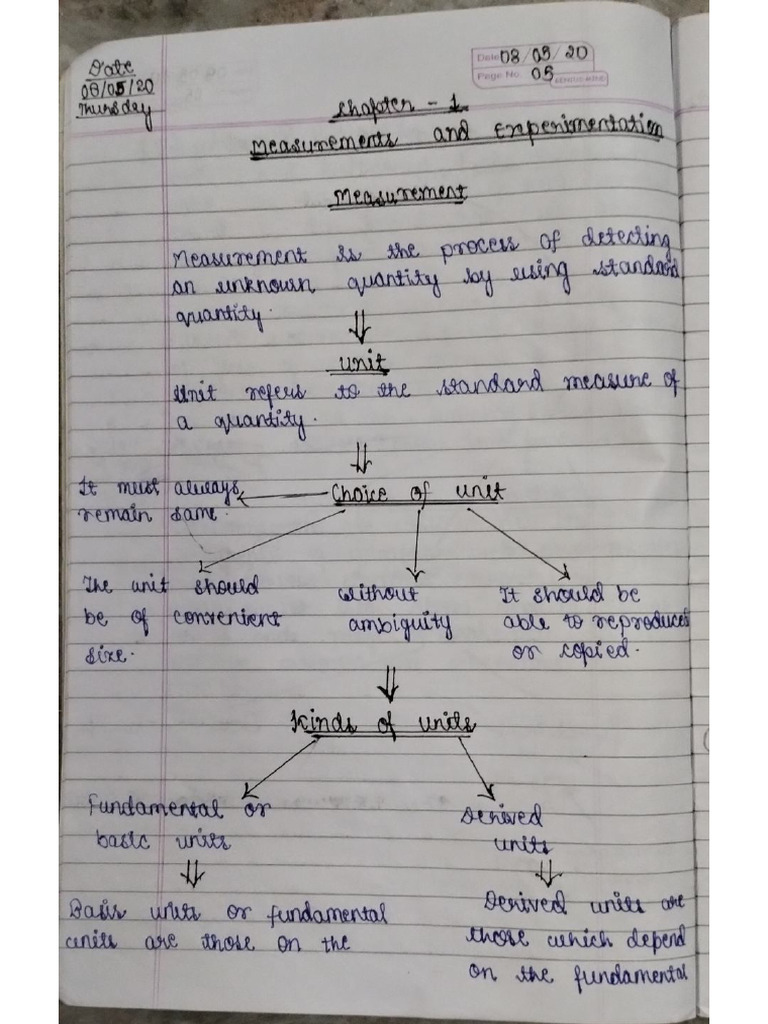 Date
08/05/20
Thursday
Date 08/09/20
Page No. 05
Chapter - 1
Measurements and Experimentation
Measurement
Measurement is the process of detecting
an unknown quantity by using standard
quantity.
⇓
Unit
Unit refers to the standard measure of
a quantity.
⇓
Choice of unit
It must always
remain same.
The unit should
be of convenient
size.
without
ambiguity
It should be
able to reproduced
or copied.
⇓
Kinds of units
Fundamental or
basic units
⇓
Basis units or fundamental
units are those on the
Derived
units
⇓
Derived units are
those which depend
on the fundamental